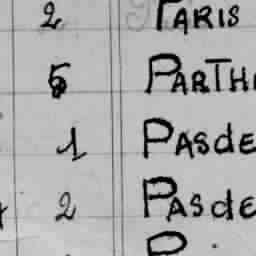 2 PARIS
5 PARTH
1 PASde
2 PASde